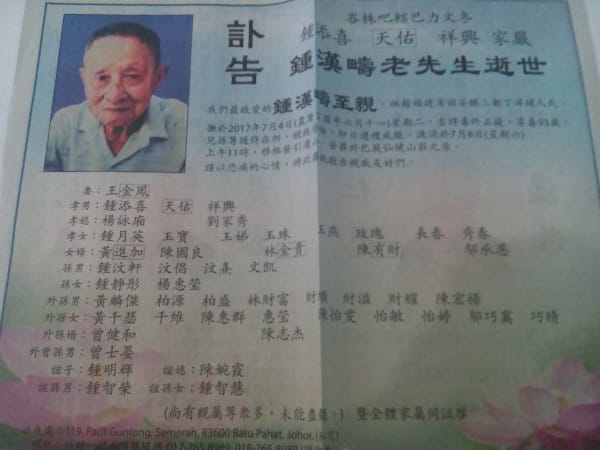 峇株吧轄巴力文冬
鍾添喜 天佑 祥興 家嚴
訃告 鍾漢疇老先生逝世
我們最敬愛的鍾漢疇至親，祖籍福建省詔安縣三都丁洋堡人氏，
慟於2017年7月4日(農曆 年六月十一)星期二，壽終正寢，享壽93歲。
兒孫等隨侍在側，親視 ，即日遵禮成服，涓擇於7月8日(星期六)
上午11時，移柩發引
謹以悲痛的心情，將此 敬告親戚友好們。
妻：王金鳳
孝男：鍾添喜 天佑 祥興
孝媳：楊詠廂 劉家秀
孝女：鍾月英 玉寶 玉娣 玉珠 玉燕 玫瑰 長春 秀春
女婿：黃進加 陳國良 林金貴 陳有財 鄔承恩
孫男：鍾汶軒 汶倡 汶熹 文凱
孫女：鍾靜彤 楊惠瑩
外孫男：黃麟傑 柏源 柏盛 林財富 財順 財溢 財耀 陳宏揚
外孫女：黃千瑟 千維 陳惠群 惠瑩 陳怡雯 怡敏 怡婷 鄔巧薰 巧晴
外孫婿：曾健和 陳志杰
外曾孫男：曾士晏
誼子：鍾明輝 誼媳：陳婉霞
誼孫男：鍾智榮 誼孫女：鍾智慧
(尚有親屬等眾多，未能盡錄。) 暨全體家屬同泣啓
119, Parit Guntong, Semerah, 83600 Batu Pahat, Johor.
017-765 8989, 018-765 8989